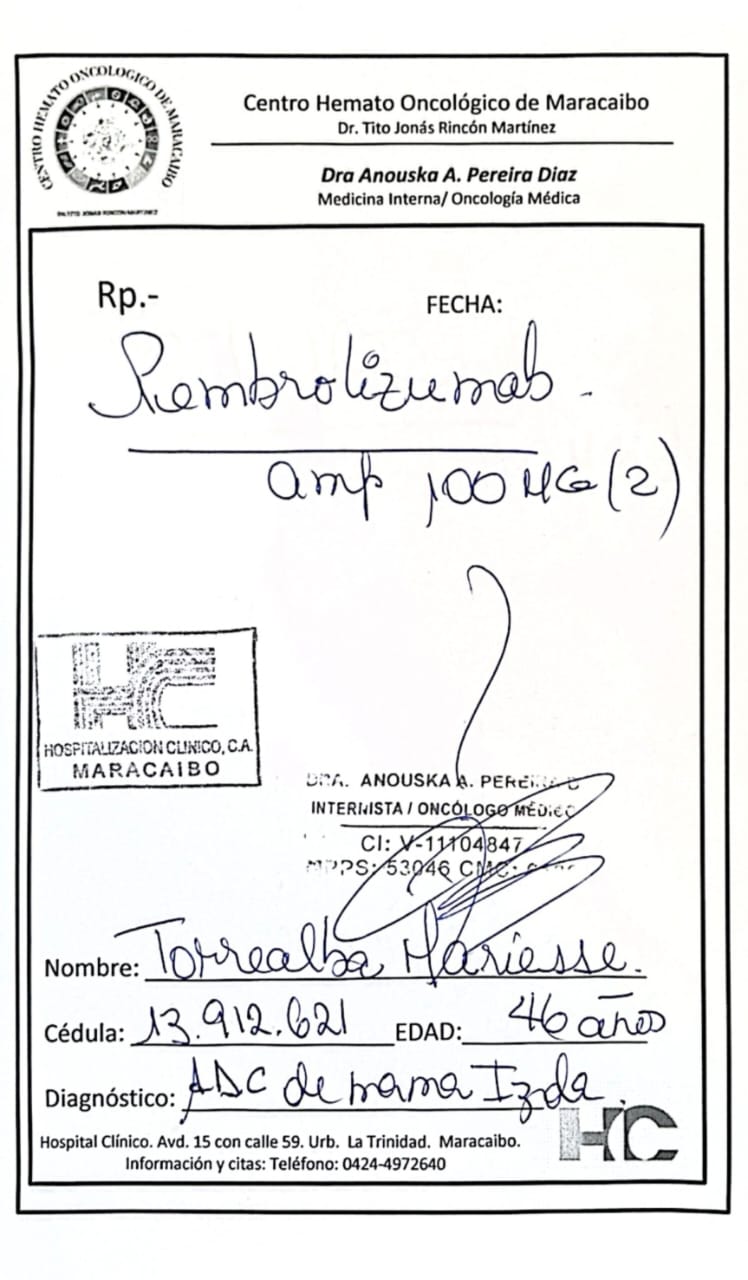 CENTRO HEMATO ONCOLOGICO DE MARACAIBO
Centro Hemato Oncológico de Maracaibo
Dr. Tito Jonás Rincón Martínez
Dra Anouska A. Pereira Diaz
Medicina Interna/ Oncología Médica
DR. TITO JONAS RINCON MARTINEZ
Rp.-
FECHA:
Pembrolizumab.
amp 100 MG (2)
HC
HOSPITALIZACION CLINICO, C.A.
MARACAIBO
DRA. ANOUSKA A. PEREIRA D
INTERNISTA / ONCÓLOGO MÉDICO
CI: V-11104847
MPPS: 53046 CMC:
Nombre: Torrealba Mariesse.
Cédula: 13.912.621 EDAD: 46 años
Diagnóstico: ADC de mama Izda.
HC
Hospital Clínico. Avd. 15 con calle 59. Urb. La Trinidad. Maracaibo.
Información y citas: Teléfono: 0424-4972640